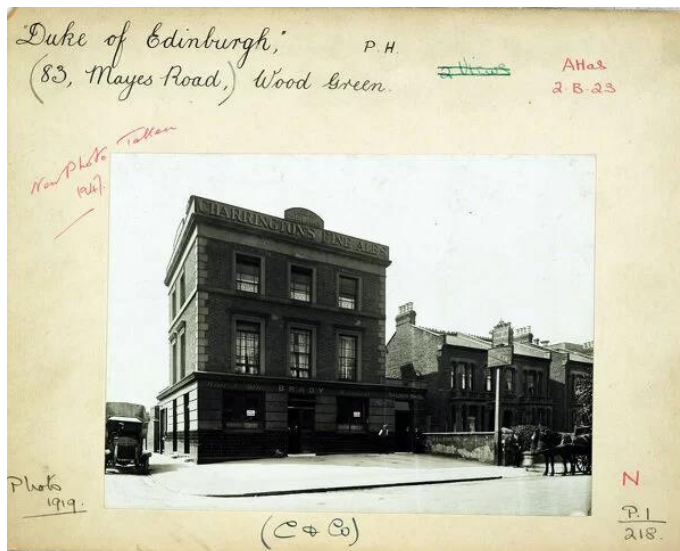 "Duke of Edinburgh,"  P.H.
(83, Mayes Road,) Wood Green.
2 Views
Atlas
2.B.23
New Photo Taken
1947.
CHARRINGTON'S FINE ALES
BRADY
Photo
1919.
(C & Co)
N
P.1
218.